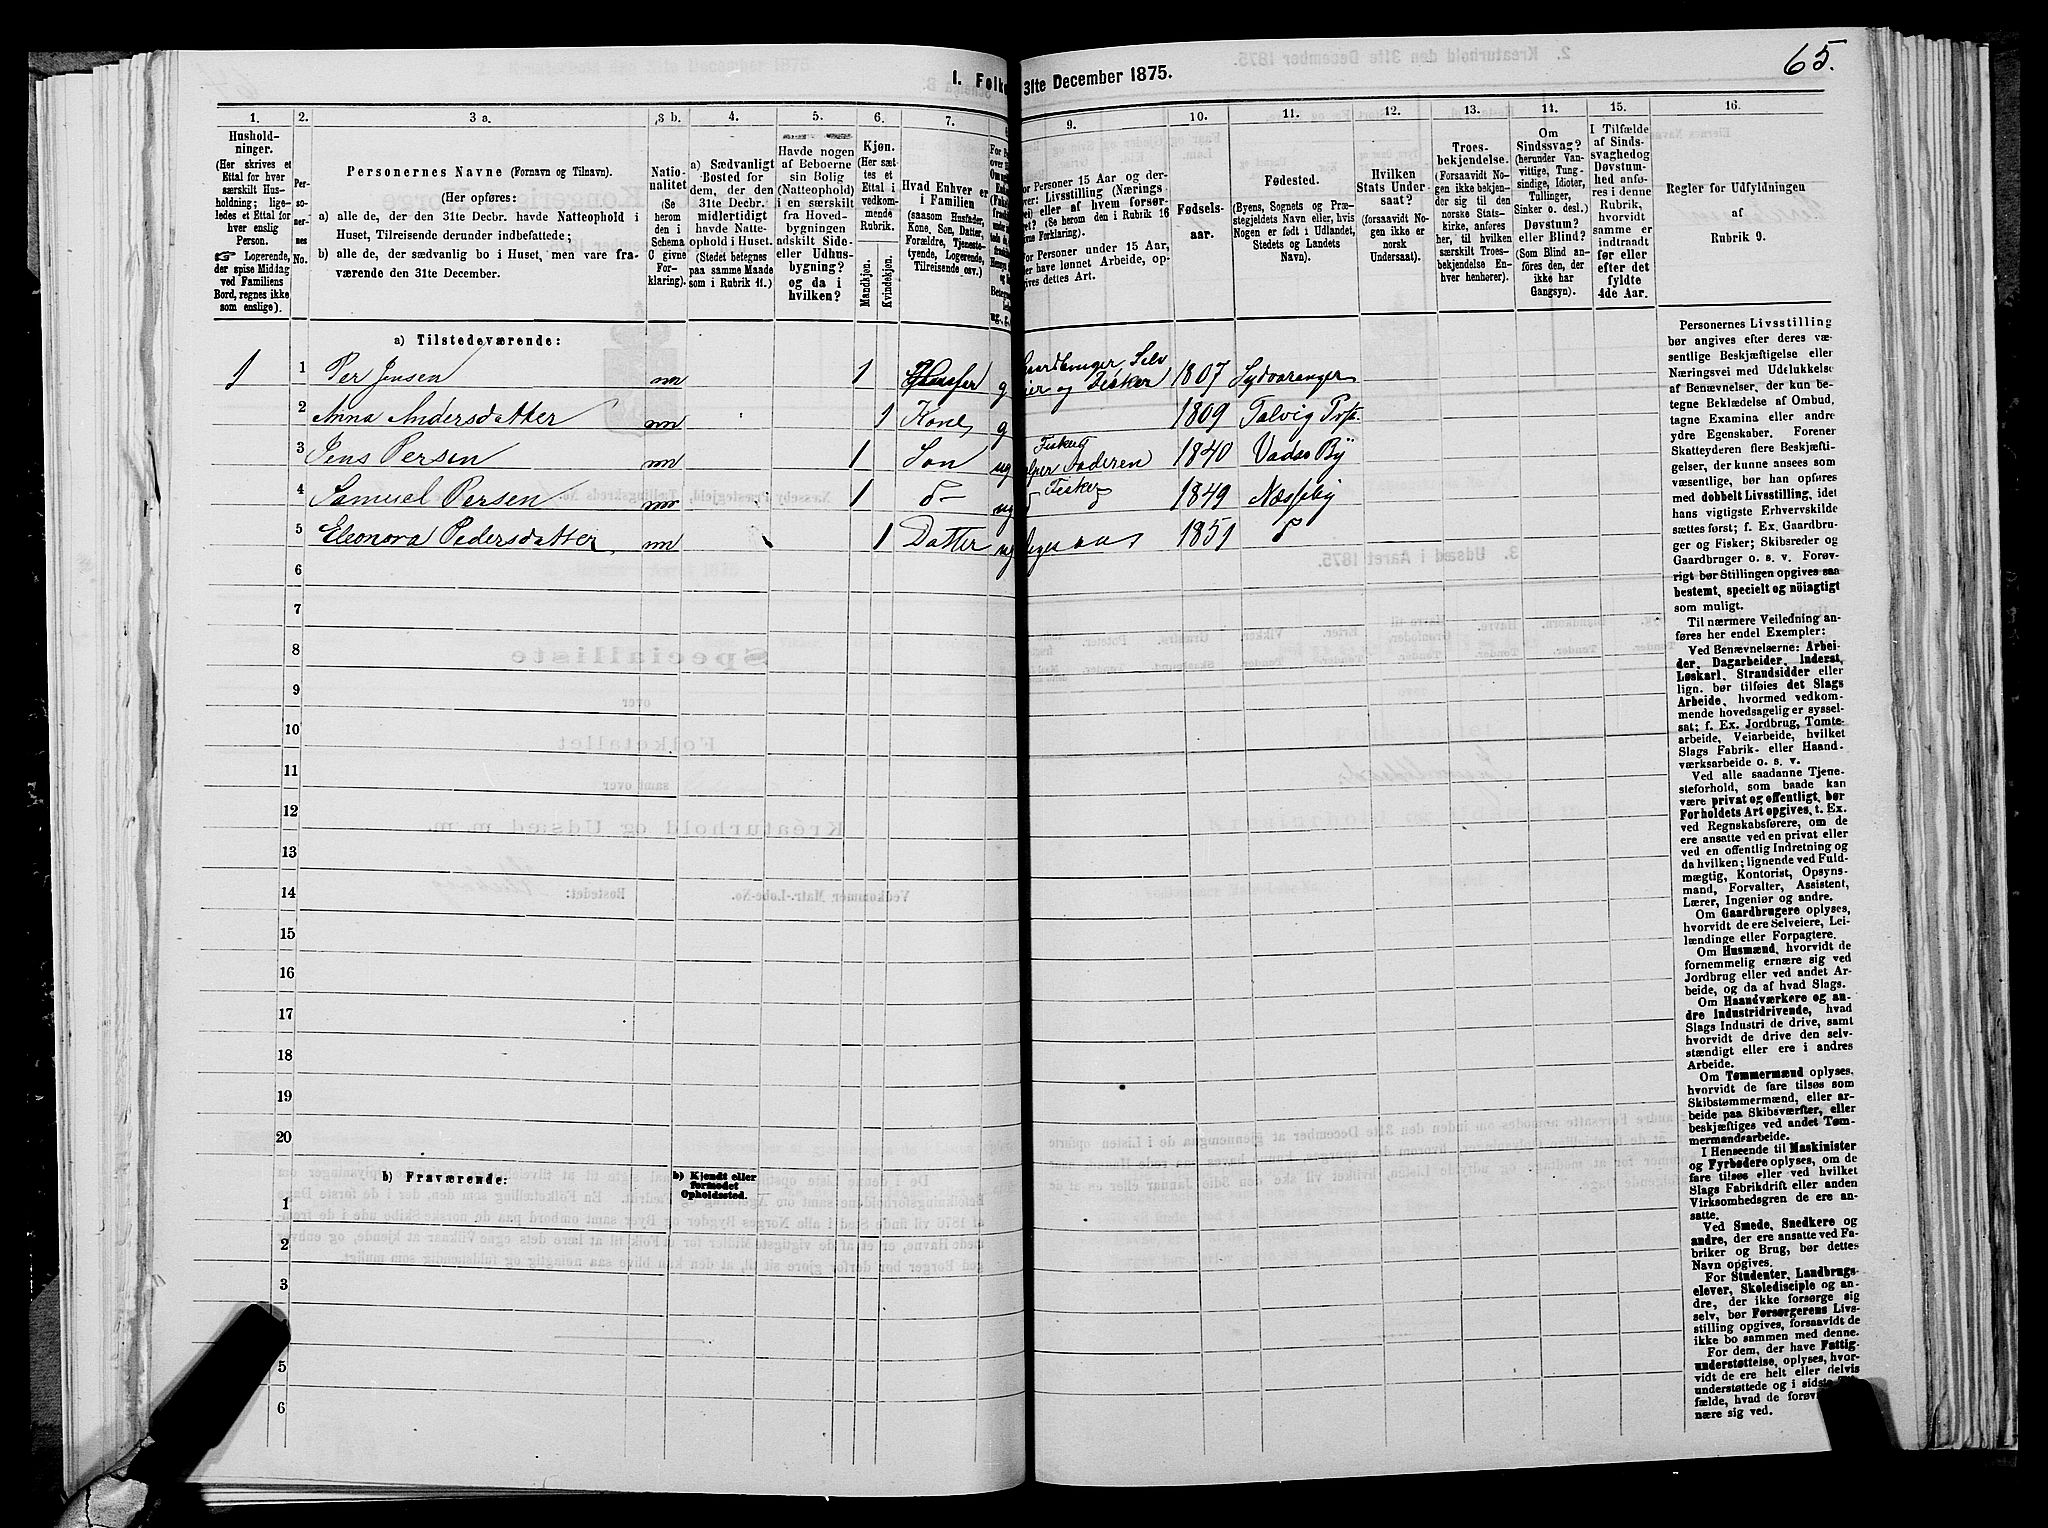 65.
I. Folke
31te December 1875.
1. 2. 3 a. 3 b. 4. 5. 6. 7. 9. 10. 11. 12. 13. 14. 15. 16.
Hushold-
ninger.
(Her skrives et
Ettal for hver
særskilt Hus-
holdning; lige-
ledes et Ettal for
hver enslig
Person.
☞ Logerende,
der spise Middag
ved Familiens
Bord, regnes ikke
som enslige).
Per-
sone-
nes
No.
Personernes Navne (Fornavn og Tilnavn).
(Her opføres:
a) alle de, der den 31te Decbr. havde Natteophold i
Huset, Tilreisende derunder indbefattede;
b) alle de, der sædvanlig bo i Huset, men vare fra-
værende den 31te December.
Natio-
nalitet
(Se
herom
den i
Schema
C givne
For-
klaring).
a) Sædvanligt
Bosted for
dem, der den
31te Decbr.
midlertidigt
havde Natte-
ophold i Huset.
(Stedet betegnes
paa samme Maade
som i Rubrik 11.)
Havde nogen
af Beboerne
sin Bolig
(Natteophold)
i en særskilt
fra Hoved-
bygningen
adskilt Side-
eller Udhus-
bygning?
og da i
hvilken?
Kjøn.
(Her sæt-
tes et
Ettal i
vedkom-
mende
Rubrik.
Mandkjøn.
Kvindekjøn.
Hvad Enhver er
i Familien
(saasom Husfader,
Kone, Søn, Datter,
Forældre, Tjeneste-
tyende, Logerende,
Tilreisende osv.)
For Personer 15 Aar og der-
over: Livsstilling (Nærings
vei) eller af hvem forsør-
get (Se herom den i Rubrik 16
givne Forklaring).
For Personer under 15 Aar,
der have lønnet Arbeide, op-
gives dettes Art.
Fødsels-
aar.
Fødested.
(Byens, Sognets og Præ-
stegjeldets Navn eller, hvis
Nogen er født i Udlandet,
Stedets og Landets
Navn).
Hvilken
Stats Under-
saat?
(forsaavidt No-
gen ikke er
norsk
Undersaat).
Troes-
bekjendelse.
(Forsaavidt No-
gen ikke bekjen-
der sig til den
norske Stats-
kirke, anføres
her, til hvilken
særskilt Troes-
bekjendelse En-
hver henhører).
Om
Sindssvag?
(herunder Van-
vittige, Tung-
sindige, Idioter,
Tullinger,
Sinker o. desl.)
Døvstum?
eller Blind?
(Som Blind an-
føres den, der
ikke har
Gangsyn).
I Tilfælde
af Sinds-
svaghed og
Døvstum-
hed anfø-
res i denne
Rubrik,
hvorvidt
samme er
indtraadt
før eller
efter det
fyldte
4de Aar.
Regler for Udfyldningen
af
Rubrik 9.
a) Tilstedeværende:
1 1 Per Jensen nn 1 Husfar g Gaardbruger Selv
eier og Fisker 1807 Sydvaranger
2 Anna Andersdatter nn 1 Kone g 1809 Talvig Prst.
3 Jens Persen nn 1 Søn ug Fisker
hjelper Faderen 1840 Vadsø By
4 Samuel Persen nn 1 d- ug Fisker 1849 Næsseby
5 Eleonora Pedersdatter nn 1 Datter ug 1851
6
7
8
9
10
11
12
13
14
15
16
17
18
19
20
b) Fraværende:
b) Kjendt eller
formodet
Opholdssted.
1
2
3
5
6
Personernes Livsstilling
bør angives efter deres væ-
sentlige Beskjæftigelse eller
Næringsvei med Udelukkelse
af Benævnelser, der kun be-
tegne Beklædelse af Ombud,
tagne Examina eller andre
ydre Egenskaber. Forener
Skatteyderen flere Beskjæfti-
gelser, der kunne ansees som
væsentlige, bør han opføres
med dobbelt Livsstilling, idet
hans vigtigste Erhvervskilde
sættes først; f. Ex. Gaardbru-
ger og Fisker; Skibsreder og
Gaardbruger o. s. v. Forøv-
rigt bør Stillingen opgives saa
bestemt, specielt og nöiagtigt
som muligt.
Til nærmere Veiledning an-
føres her endel Exempler:
Ved Benævnelserne: Arbei-
der, Dagarbeider, Inderst,
Løskarl, Strandsidder eller
lign. bør tilføies det Slags
Arbeide, hvormed vedkom-
mende hovedsagelig er syssel-
sat; f. Ex. Jordbrug, Tomte-
arbeide, Veiarbeide, hvilket
Slags Fabrik- eller Haand-
værksarbeide o. s. v.
Ved alle saadanne Tjene-
steforhold, som baade kan
være privat og offentligt, bør
Forholdets Art opgives, t. Ex.
ved Regnskabsførere, om de
ere ansatte ved en privat eller
ved en offentlig Indretning og
da hvilken; lignende ved Fuld-
mægtig, Kontorist, Opsyns-
mand, Forvalter, Assistent,
Lærer, Ingeniør og andre.
Om Gaardbrugere oplyses,
hvorvidt de ere Selveiere, Lei-
lændinge eller Forpagtere.
Om Husmænd, hvorvidt de
fornemmelig ernære sig ved
Jordbrug eller ved andet Ar-
beide, og da af hvad Slags.
Om Haandværkere og an-
dre Industridrivende, hvad
Slags Industri de drive, samt
hvorvidt de drive den selv-
stændigt eller ere i andres
Arbeide.
Om Tømmermænd oplyses,
hvorvidt de fare tilsøs som
Skibstømmermænd, eller ar-
beide paa Skibsværfter, eller
beskjæftiges ved andet Tøm-
mermandsarbeide.
I Henseende til Maskinister
og Fyrbødere oplyses, om de
fare tilsøs eller ved hvilket
Slags Fabrikdrift eller anden
Virksomhedsgren de ere an-
satte.
Ved Smede, Snedkere og
andre, der ere ansatte ved Fa-
briker og Brug, bør dettes
Navn opgives.
For Studenter, Landbrugs-
elever, Skoledisciple og an-
dre, der ikke forsørge sig
selv, bør Forsørgerens Livs-
stilling opgives, forsaavidt de
ikke bo sammen med denne.
For dem, der have Fattig-
understøttelse, oplyses, hvor-
vidt de ere helt eller delvis
understøttede og i sidste Til-
fælde, hvad de forøv
nære sig ved.